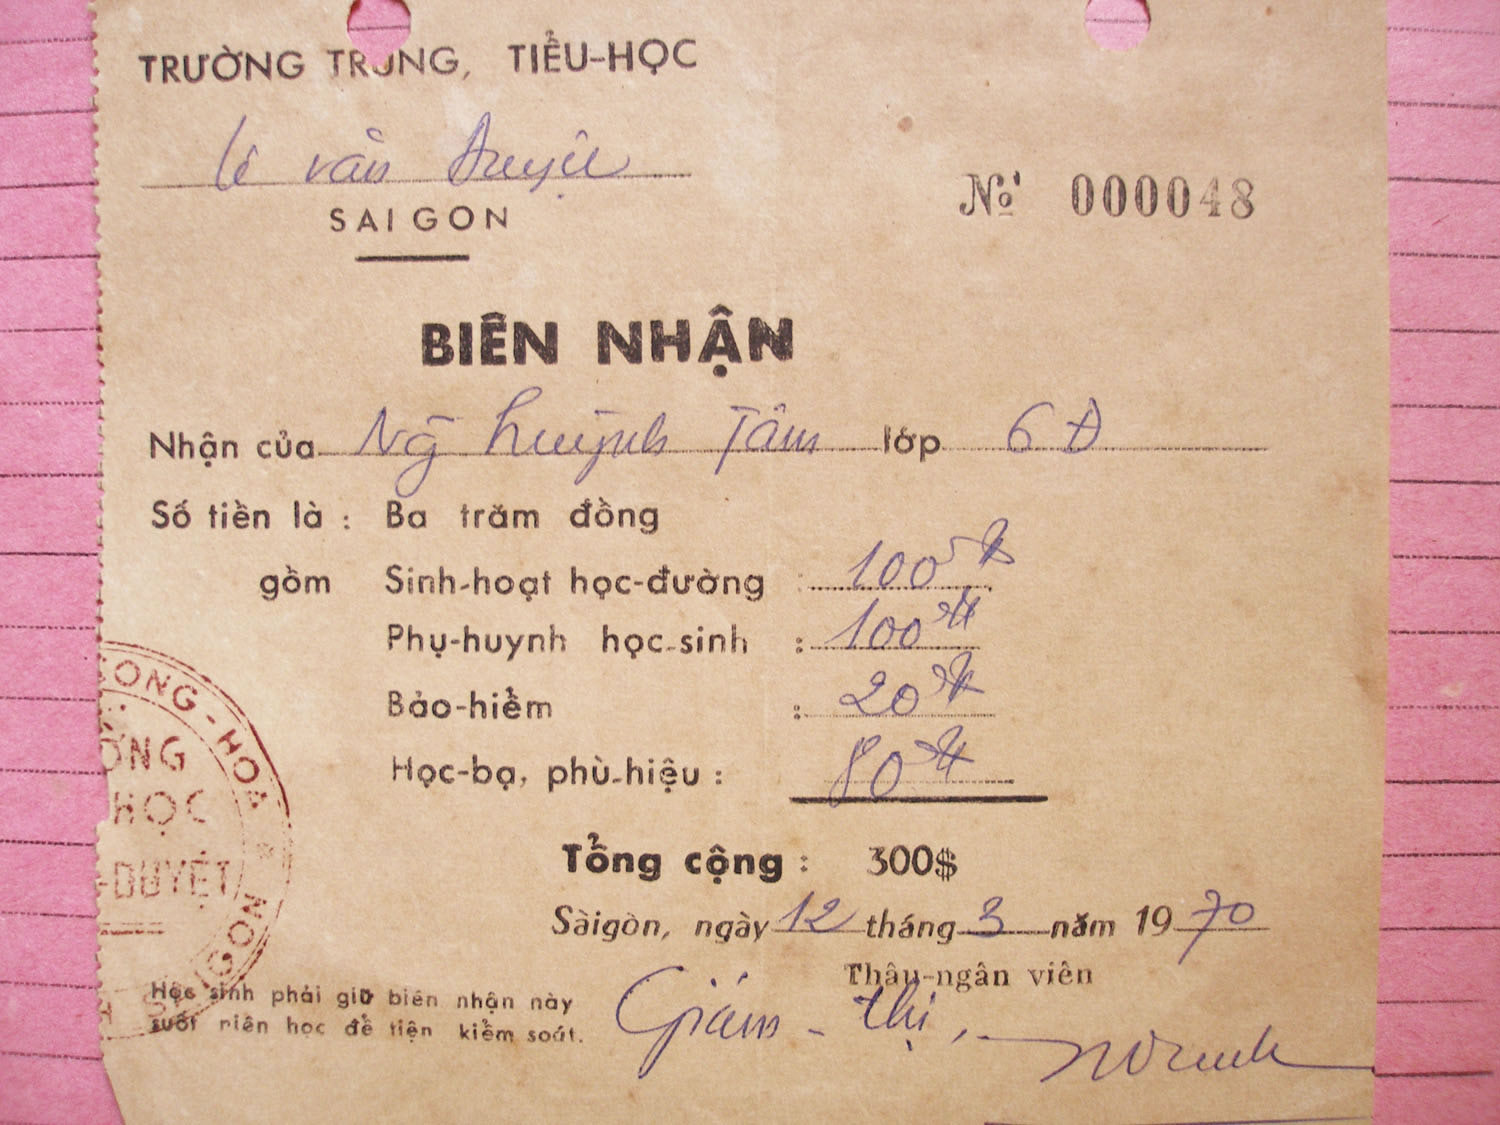 TRƯỜNG TRUNG, TIỂU-HỌC
Lê văn Duyệt
SAIGON
Nọ 000048
BIÊN NHẬN
Nhận của Ng̃ Huỳnh Tâm lớp 6 Đ
Số tiền là : Ba trăm đồng
gồm Sinh-hoạt học-đường : 100đ
Phụ-huynh học-sinh : 100đ
Bảo-hiểm : 20đ
Học-bạ, phù-hiệu : 80đ
Tổng cộng : 300$
Sàigòn, ngày 12 tháng 3 năm 1970
Thâu-ngân viên
Giám-thị,
Học sinh phải giữ biên nhận này
suốt niên học để tiện kiểm soát.
ỘNG-HOÀ
ỜNG
HỌC
-DUYỆT